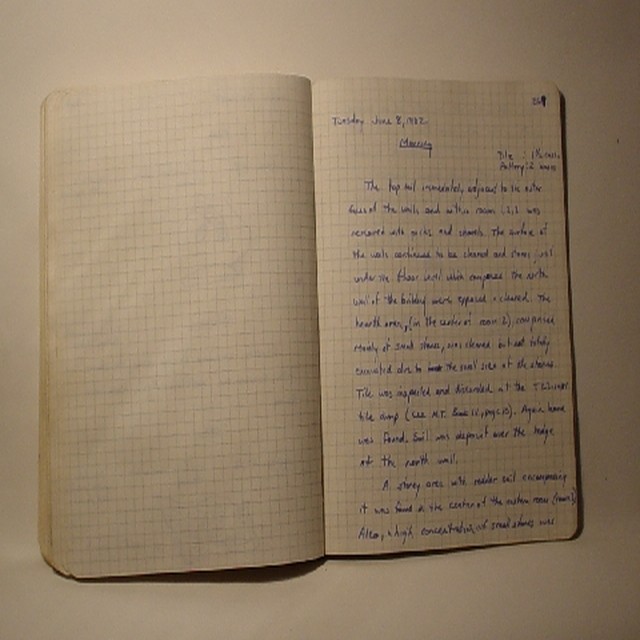 Tuesday June 8, 1982
Morning
Tile :
Pottery: 2
The top soil immediately adjacent to the outer
faces of the walls and within rooms 1, 2, 3 was
removed with picks and shovels. The surface of
the walls continued to be cleaned and
under the floor level which composes the north
wall of the building were exposed + cleaned. The
hearth area, (in the center of room 2), comprised
mainly of small stones, was cleaned but not totally
excavated due to the small size of the stones.
Tile was inspected and discarded at the
tile dump (see Book page 13). Again bone
was found. Soil was deposited over the hedge
at the north wall.
A stoney area with redder soil encompassing
it was found in the center of the eastern room (room 3)
Also, a high concentration of small stones was